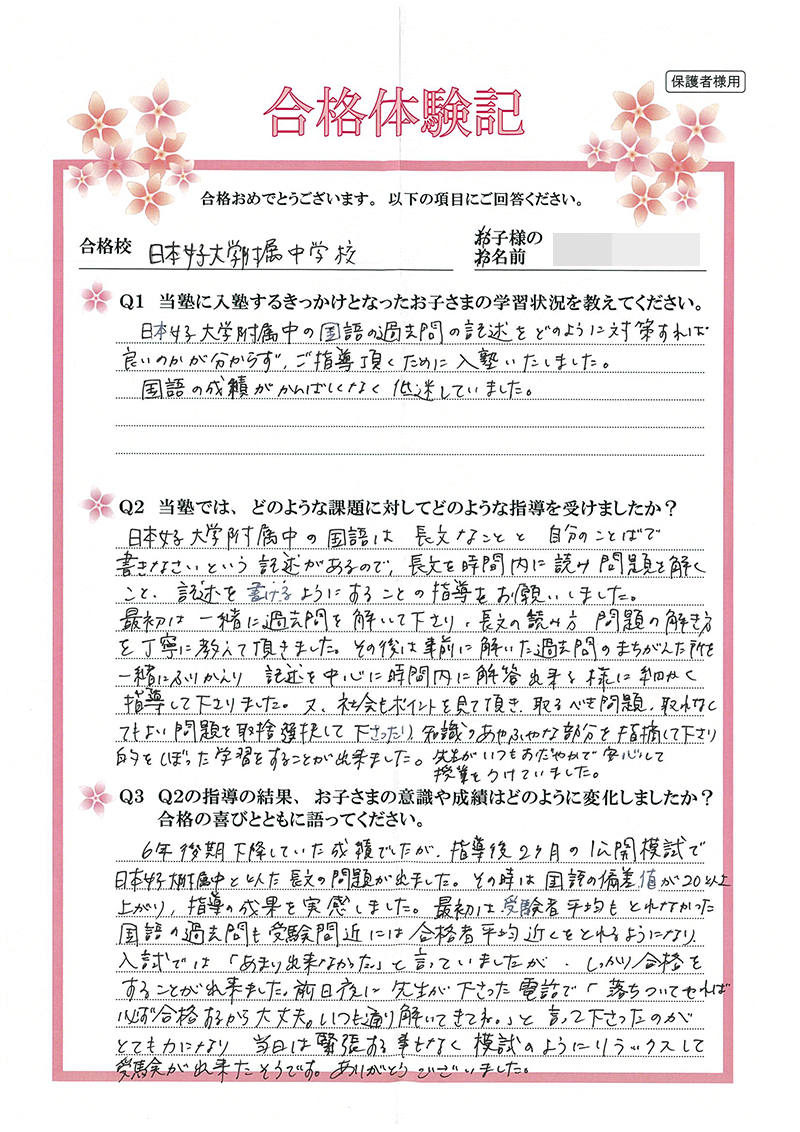 保護者様用
合格体験記
合格おめでとうございます。以下の項目にご回答ください。
合格校 日本女子大学附属中学校
お子様の
お名前
Q1 当塾に入塾するきっかけとなったお子さまの学習状況を教えてください。
日本女子大学附属中の国語の過去問の記述をどのように対策すれば
良いのかが分からず、ご指導頂くために入塾いたしました。
国語の成績がかんばしくなく低迷していました。
Q2 当塾では、どのような課題に対してどのような指導を受けましたか？
日本女子大学附属中の国語は長文なことと自分のことばで
書きなさいという記述があるので、長文を時間内に読み問題を解く
こと、記述を書けるようにすることの指導をお願いしました。
最初は一緒に過去問を解いて下さり、長文の読み方 問題の解き方
を丁寧に教えて頂きました。その後は事前に解いた過去問のまちがえた所を
一緒にふりかえり 記述を中心に時間内に解答出来る様に細かく
指導して下さりました。又、社会もポイントを見て頂き、取るべき問題、取れなく
てもよい問題を取捨選択して下さったり、知識のあやふやな部分を指摘して下さり
的をしぼった学習をすることが出来ました。先生がいつもおだやかで安心して
授業をうけていました。
Q3 Q2の指導の結果、お子さまの意識や成績はどのように変化しましたか？
合格の喜びとともに語ってください。
6年後期下降していた成績でしたが、指導後2ヶ月の公開模試で
日本女子大附属中と似た長文の問題が出ました。その時は国語の偏差値が20以上
上がり、指導の成果を実感しました。最初は受験者平均もとれなかった
国語の過去問も受験間近には合格者平均近くをとれるようになり、
入試では「あまり出来なかった。」と言っていましたが、しっかり合格を
することが出来ました。前日夜に先生が下さった電話で「落ちついてやれば
必ず合格するから大丈夫。いつも通り解いてきてね。」と言って下さったのが
とても力になり 当日は緊張する事もなく模試のようにリラックスして
受験が出来たそうです。ありがとうございました。